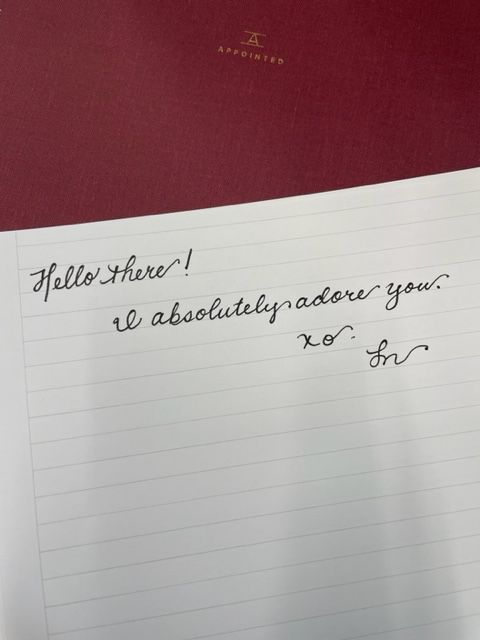 A
APPOINTED
Hello there!
I absolutely adore you.
xo.